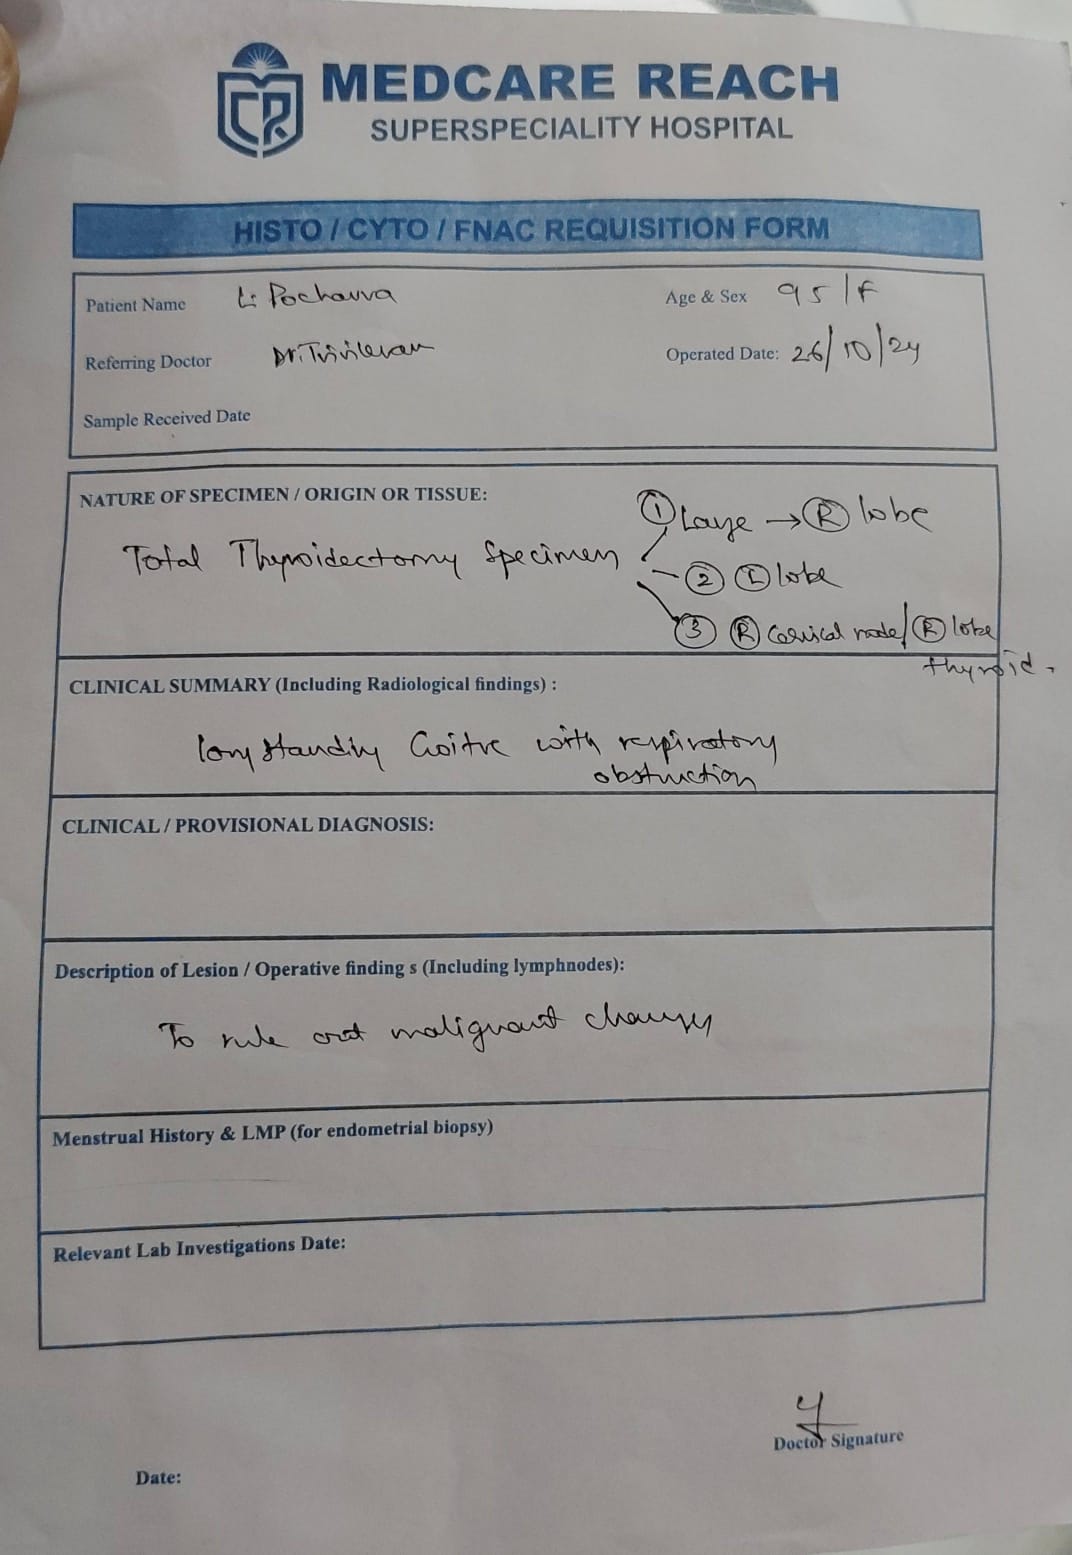 MEDCARE REACH
SUPERSPECIALITY HOSPITAL
HISTO / CYTO / FNAC REQUISITION FORM
Patient Name L: Pochavva
Age & Sex 95/F
Referring Doctor Dr.
Operated Date: 26/10/24
Sample Received Date
NATURE OF SPECIMEN / ORIGIN OR TISSUE:
① Large → Ⓡ lobe
Total Thyroidectomy Specimen
② Ⓛ lobe
③ Ⓡ Cervical node/Ⓡ lobe
thyroid.
CLINICAL SUMMARY (Including Radiological findings) :
long standing Goitre with respiratory
obstruction
CLINICAL / PROVISIONAL DIAGNOSIS:
Description of Lesion / Operative finding s (Including lymphnodes):
To rule out malignant changes
Menstrual History & LMP (for endometrial biopsy)
Relevant Lab Investigations Date:
Doctor Signature
Date: